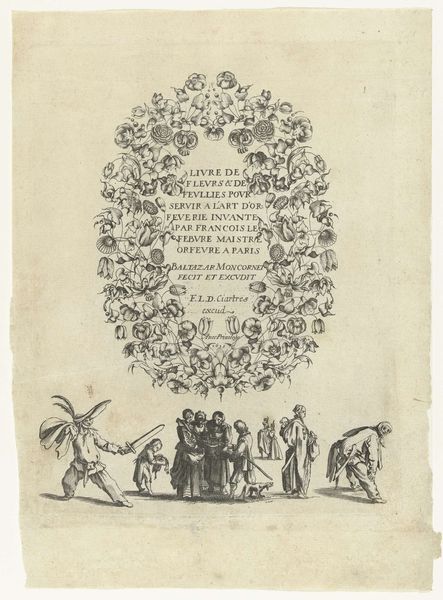 LIVRE DE
FLEURS & DE
FEVLLIES POVR
SERVIR A LART D'OR
FEVERIE INVANTE
PAR FRANCOIS LE
FEBVRE MAISTRE
ORFEVRE A PARIS
BALTAZAR MONCORNET
FECIT ET EXCVDIT
F. L. D. Ciartres
excud.